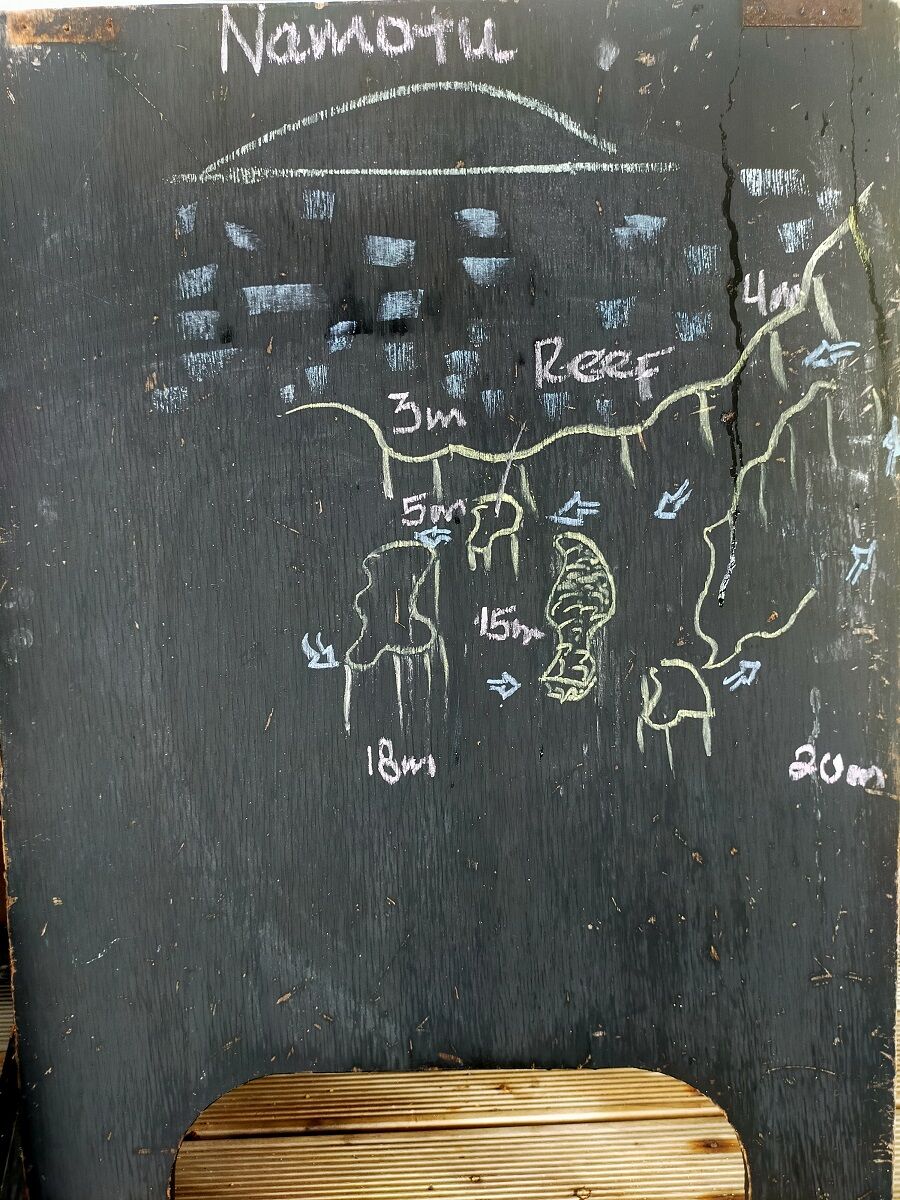 Namotu
4m
Reef
3m
5m
15m
18m
20m